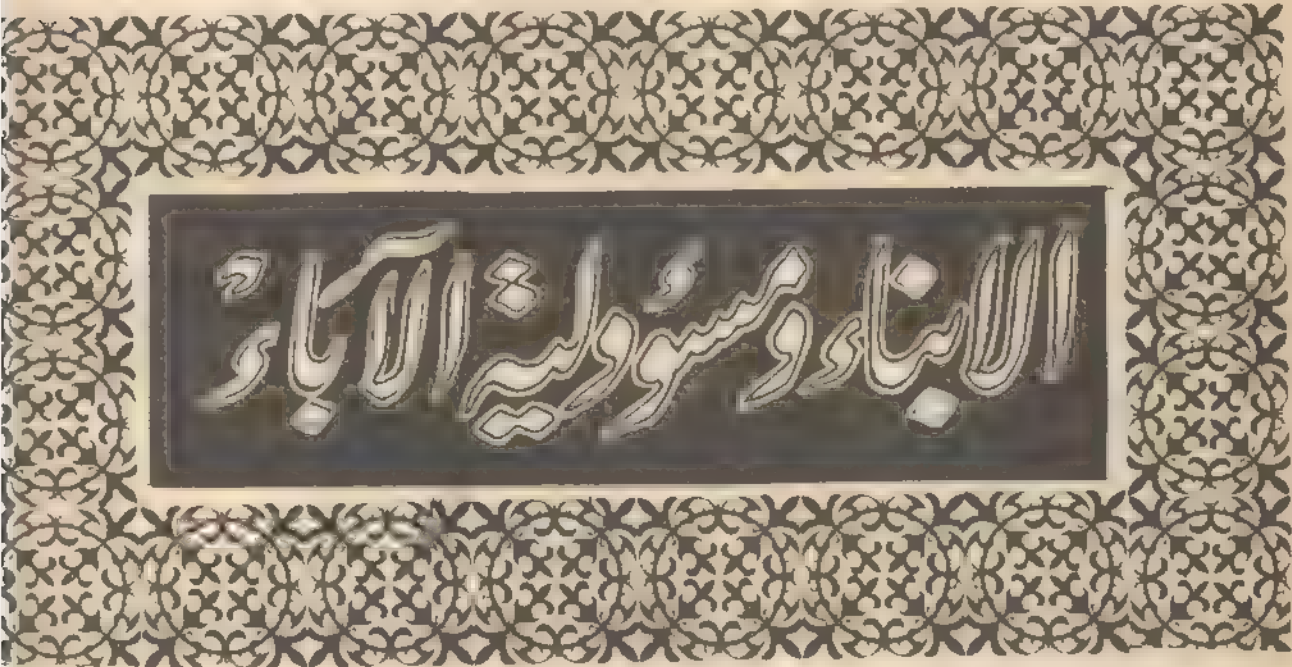 الابناء ومسؤولية الآباء